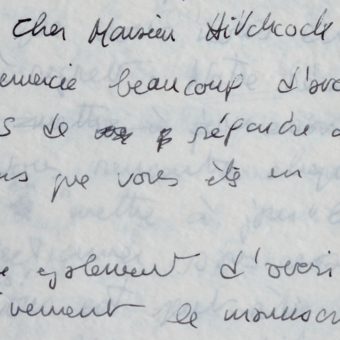 Cher Monsieur Hitchcock
emercie beaucoup d'avo
s de répondre a
ns que vous êtes en
e également d'avoir
vement le manuscr